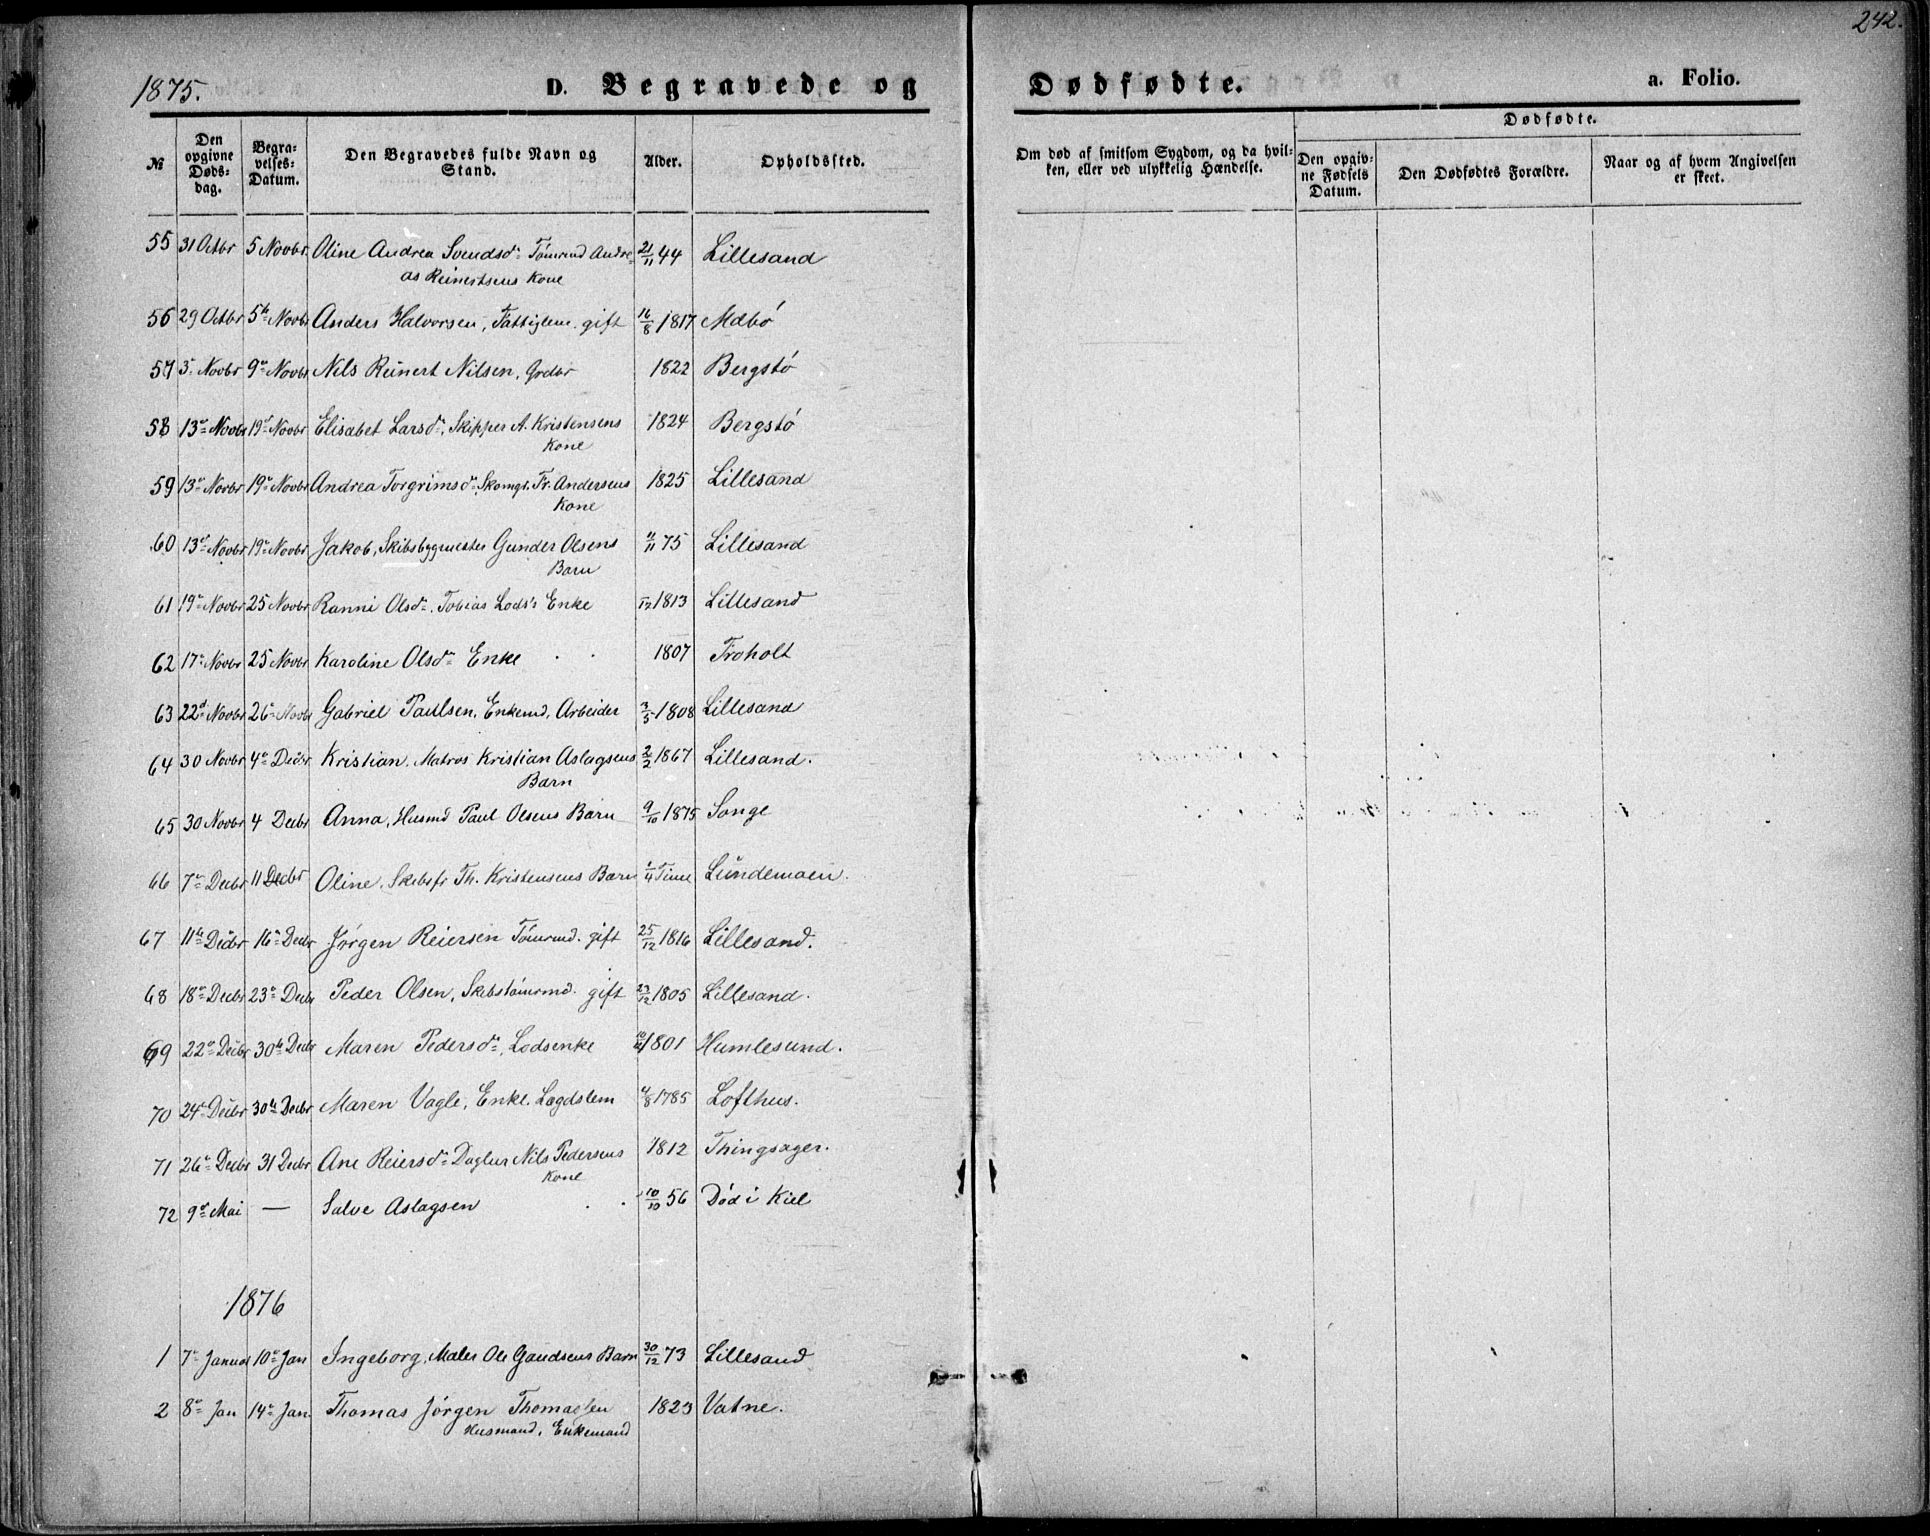 242.
1875.
D. Begravede og Dødfødte. a. Folio.
№ Den opgivne Døds-dag. Begra-velses-Datum. Den Begravedes fulde Navn og Stand. Alder. Opholdssted. Om død af smitsom Sygdom, og da hvil-ken, eller ved ulykkelig Hændelse. Dødfødte. Den opgiv-ne Fødsels Datum. Den Dødfødtes Forældre. Naar og af hvem Angivelsen er skeet.
55 31 Octbr 5 Novbr. Oline Andrea Svendsd. Tømrmd Andre- 21/11 44 Lillesand
as Reinertsens Kone
56 29 Octbr 5te Novbr Anders Halvorsen, Fattiglem. gift 16/8 1817 Mæbø
57 3 Novbr 9 Novbr Nils Reinert Nilsen, Grdbr 1822 Bergstø
58 13 Novbr 19 Novbr Elisabet Larsd. Skipper A. Kristensens 1824 Bergstø
Kone
59 13 Novbr 19 Novbr Andrea Torgrimsd. Skomgr. Fr. Andersens 1825 Lillesand
Kone
60 13 Novbr 19 Novbr Jakob, Skibsbygmester Gunder Olsens 11/11 75 Lillesand
Barn
61 19 Novbr 25 Novbr Ranni Olsd. Tobias Lods's Enke /12 1813 Lillesand
62 17 Novbr 25 Novbr Karoline Olsd. Enke 1807 Froholt
63 22d Novbr 26 Novbr Gabriel Paulsen, Enkemd, Arbeider 3/5 1808 Lillesand
64 30 Novbr 4 Decbr Kristian, Matros Kristian Aslagsens 2/2 1867 Lillesand.
Barn
65 30 Novbr 4 Decbr Anna, Husmd Paul Olsens Barn 9/10 1875 Songe
66 7 Decbr 11 Decbr Oline, Skibsfr Th. Kristensens Barn 1/4 Time Lundemoen.
67 11te Decbr 16 Decbr Jørgen Reiersen Tømrmd. gift 25/12 1816 Lillesand.
68 18 Decbr 23 Decbr Peder Olsen, Skibstømrmd. gift 23/12 1805 Lillesand.
69 22 Decbr 30te Decbr Maren Pedersd. Lodsenke 1801 Humlesund.
70 24 Decbr 30te Decbr Maren Vagle, Enke. Lægdslem 4/8 1785 Lofthus.
71 26 Decbr 31 Decbr Ane Reiersd. Daglnr Nils Pedersens 1812 Thingsager.
Kone
72 9 Mai — Salve Aslagsen 10/10 56 Død i Kiel
1876
1 7 Januar 10 Jan Ingeborg, Maler Ole Gaudsens Barn 30/12 73 Lillesand
2 8 Jan 14 Jan. Thomas Jørgen Thomassen 1823 Vatne.
Husmand, Enkemand